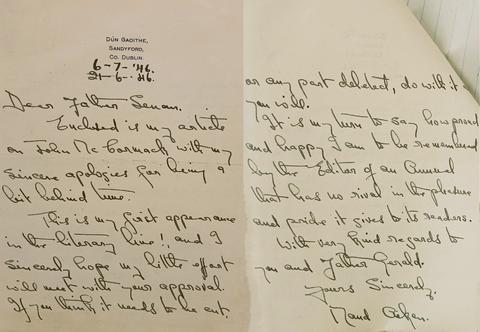 DÚN GAOITHE,
SANDYFORD,
CO. DUBLIN.
6-7-'46.
21-6-'46.
Dear Father Senan.
Enclosed is my article
on John McCormack with my
sincere apologies for being a
bit behind time.
This is my first appearance
in the literary line!! and I
sincerely hope my little effort
will meet with your approval
If you think it needs to be cut,
or any part deleted, do with it
you will.
It is my turn to say how proud
and happy I am to be remembered
by the Editor of an Annual
that has no rival in the pleasure
and pride it gives to its readers.
With very kind regards to
you and Father Gerald.
Yours Sincerely.
Maud Aiken.